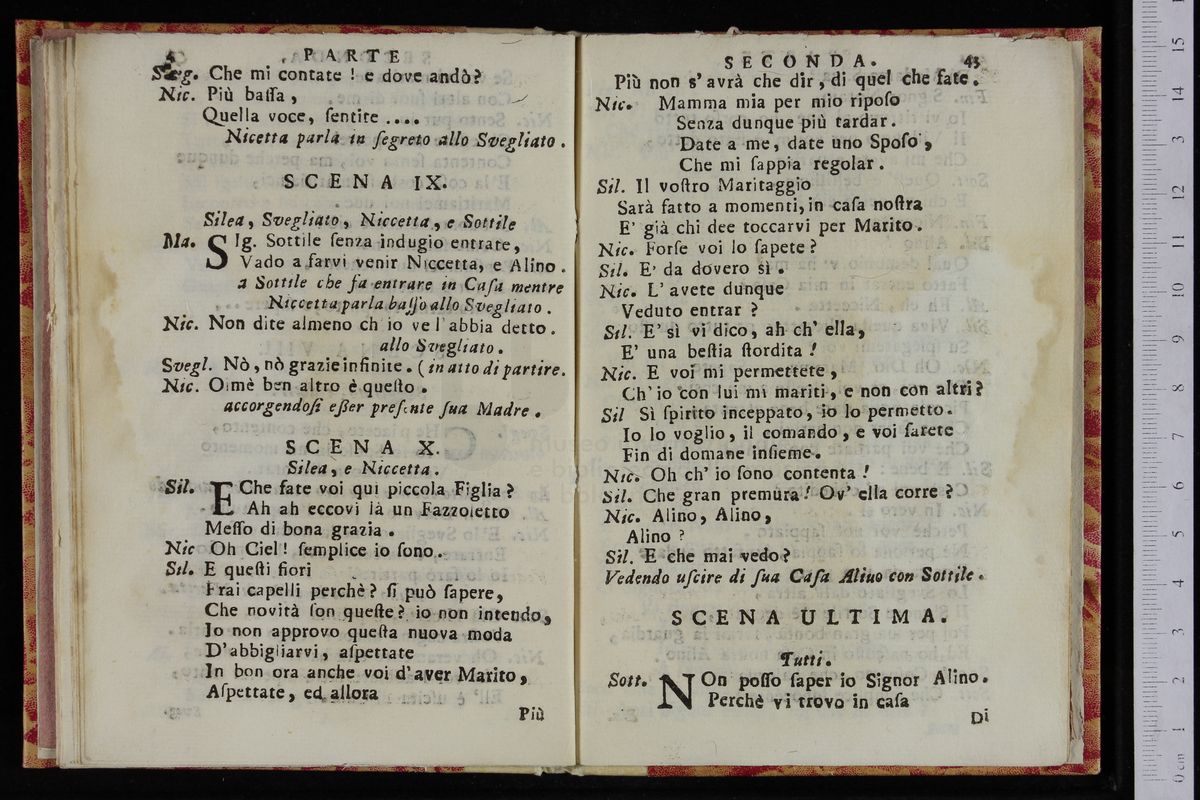 PARTE
Sveg. Che mi contate ! e dove andò?
Nic. Più baſſa ,
Quella voce, ſentite ....
Nicetta parla in ſegreto allo Svegliato .
SCENA IX.
Silea, Svegliato, Niccetta, e Sottile
Ma. SIg. Sottile ſenza indugio entrate,
Vado a farvi venir Niccetta, e Alino .
a Sottile che fa entrare in Caſa mentre
Niccetta parla baſſo allo Svegliato .
Nic. Non dite almeno ch io ve l' abbia detto .
allo Svegliato .
Svegl. Nò , nò grazie infinite . ( in atto di partire.
Nic. Oimè ben altro è queſto .
accorgendoſi eſſer preſente ſua Madre .
SCENA X.
Silea, e Niccetta.
Sil. E Che fate voi qui piccola Figlia ?
Ah ah eccovi là un Fazzoletto
Meſſo di bona grazia .
Nic Oh Ciel ! ſemplice io ſono .
Sil. E queſti fiori
Frai capelli perchè ? ſi può ſapere,
Che novità ſon queſte ? io non intendo,
Io non approvo queſta nuova moda
D' abbigliarvi , aſpettate
In bon ora anche voi d' aver Marito ,
Aſpettate, ed allora
Più
SECONDA. 43
Più non s' avrà che dir , di quel che fate .
Nic. Mamma mia per mio ripoſo
Senza dunque più tardar .
Date a me , date uno Spoſo ,
Che mi ſappia regolar .
Sil. Il voſtro Maritaggio
Sarà fatto a momenti, in caſa noſtra
E' già chi dee toccarvi per Marito .
Nic. Forſe voi lo ſapete ?
Sil. E' da dovero sì .
Nic. L' avete dunque
Veduto entrar ?
Sil. E' sì vi dico , ah ch' ella ,
E' una beſtia ſtordita !
Nic. E voi mi permettete ,
Ch' io con lui mi mariti , e non con altri ?
Sil Sì ſpirito inceppato , io lo permetto .
Io lo voglio , il comando , e voi ſarete
Fin di domane inſieme .
Nic. Oh ch' io ſono contenta !
Sil. Che gran premura ! Ov' ella corre ?
Nic. Alino , Alino ,
Alino ?
Sil. E che mai vedo ?
Vedendo uſcire di ſua Caſa Alino con Sottile .
SCENA ULTIMA.
Tutti .
Sott. NOn poſſo ſaper io Signor Alino .
Perchè vi trovo in caſa
Di
0 cm 1 2 3 4 5 6 7 8 9 10 11 12 13 14 15